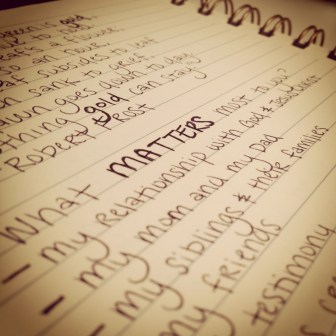 green is gold,
so an hour.
leaf subsides to leaf
sank to grief,
awn goes down to day
thing gold can stay
- Robert Frost
What MATTERS most to you?
- my relationship with God & Jesus Christ
- my mom and my Dad
- my siblings & their families
my friends
testimony